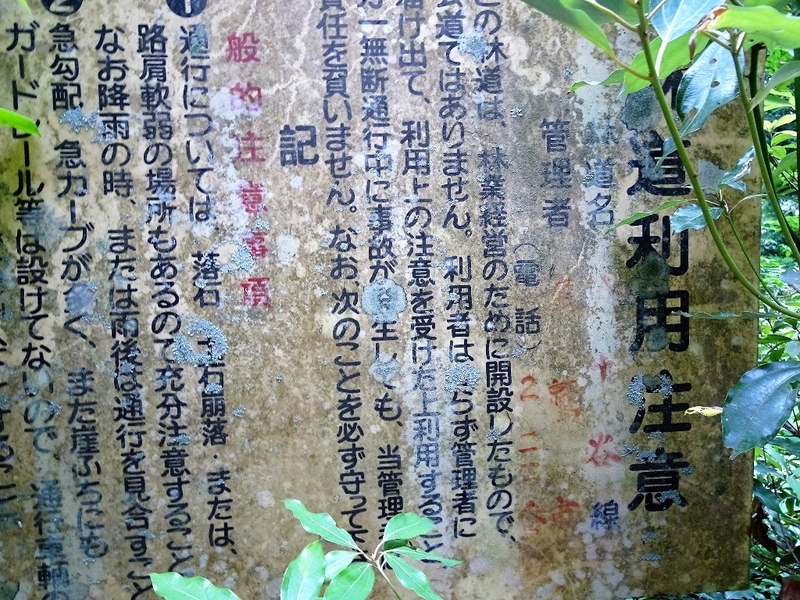 道利用注意
林道名 谷線
管理者
(電話) 2
この林道は、林業経営のために開設したもので、
道ではありません。利用者は らず管理者に
届け出て、利用上の注意を受けた上利用すること
万一無断通行中に事故が 生しても、当管理
責任を負いません。なお、次のことを必ず守って下
記
般的注意事項
❶ 通行については、落石、玉石崩落・または、
路肩軟弱の場所もあるので充分注意すること
なお降雨の時、または雨後は通行を見合すこと
❷ 急勾配、急カーブが多く、また崖ぶちにも
ガードレール等は設けてないので、通行車輌の